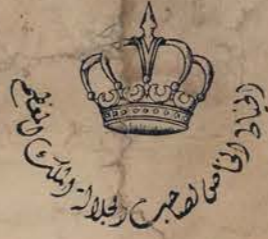 الخياط الخاص لصاحب الجلالة الملك المعظم